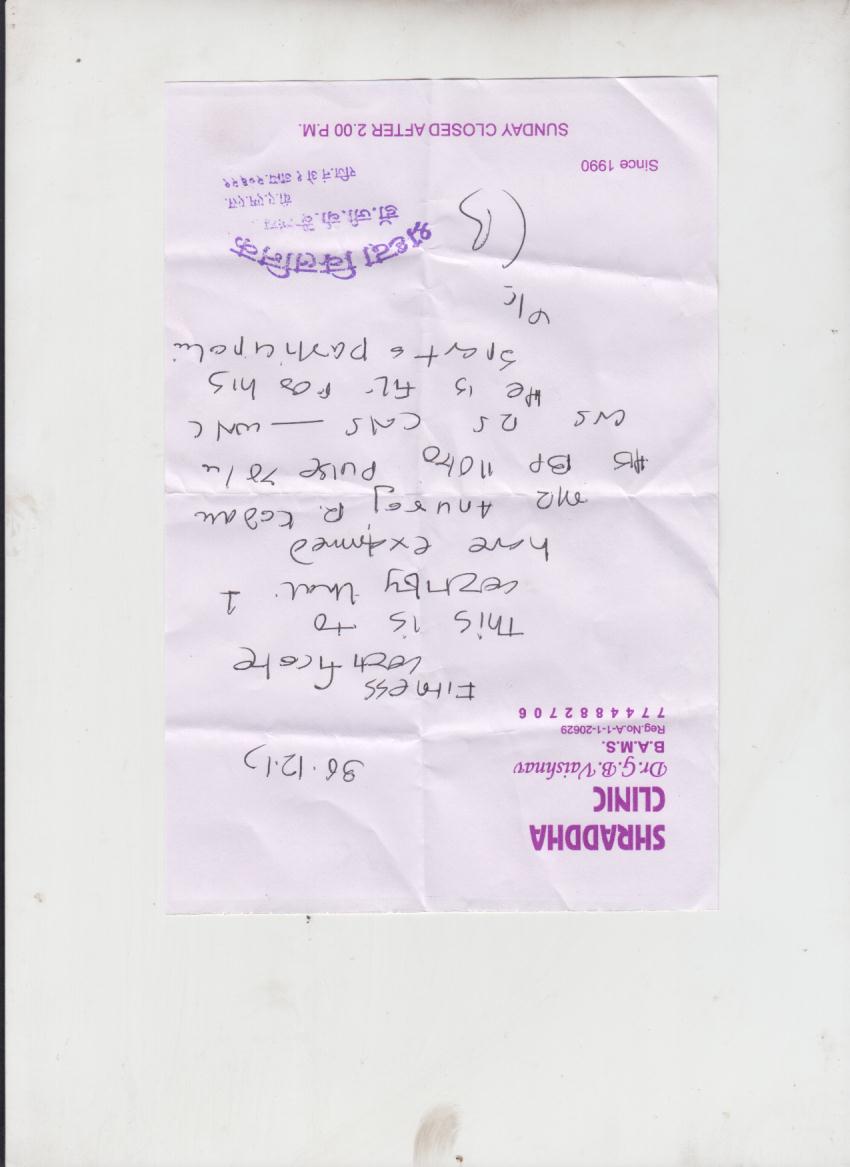 SHRADDHA
CLINIC
Dr. G.B. Vaishnav
B.A.M.S.
Reg.No.A-1-1-20629
7744882706
30.12.
Fitness
certificate
This is to
certify that I
have examined
Mr Anuraj R. Kadam
BP 110/70 Pulse 78/m
CVS RS CNS — WNL
He is fit for his
sports
श्रद्धा क्लिनिक
डॉ.जी.बी.वैष्णव
बी.ए.एम.एस.
Since 1990
SUNDAY CLOSED AFTER 2.00 P.M.